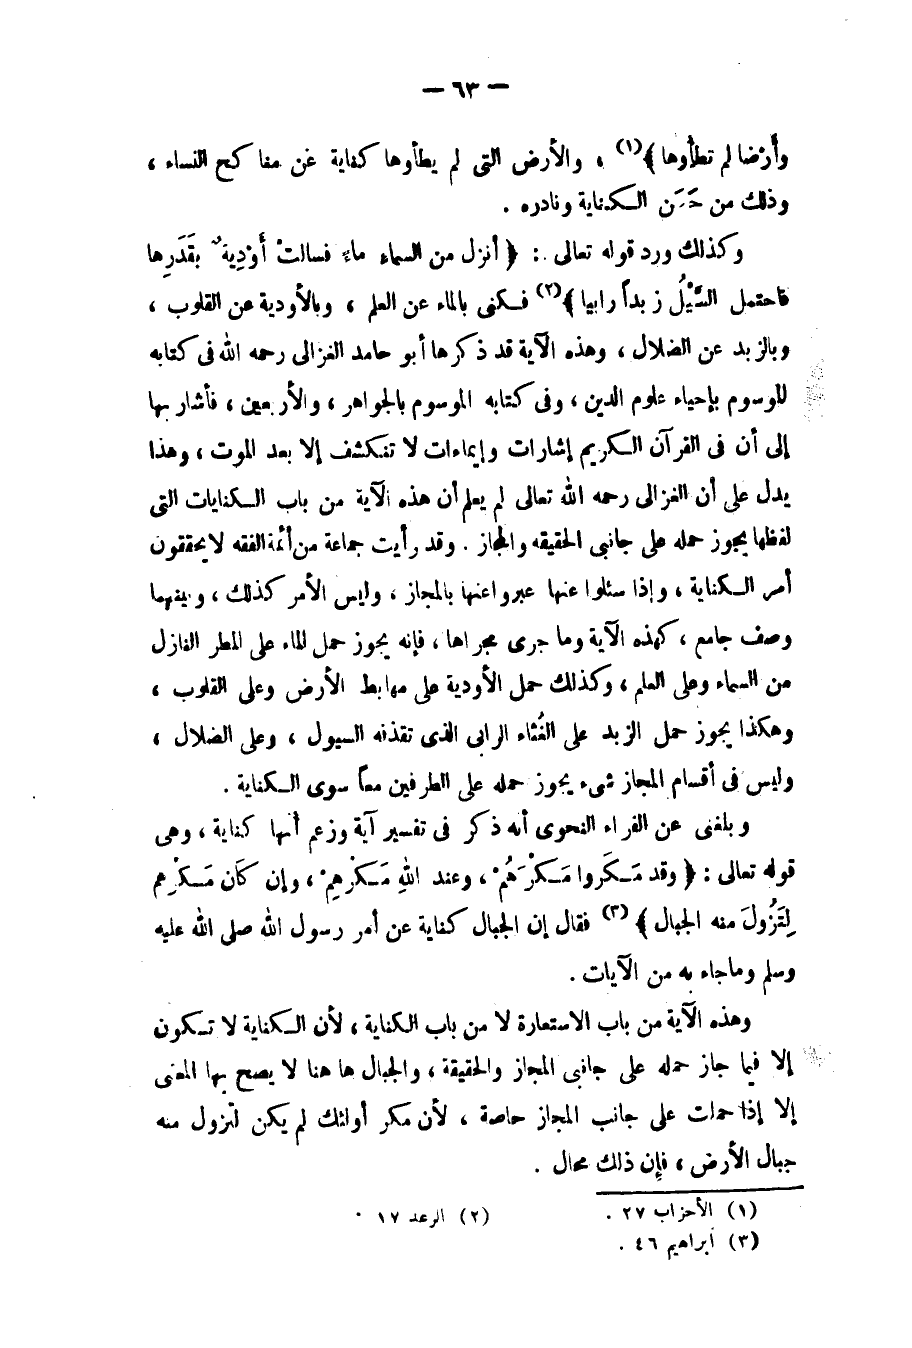 — ٦٣ —
وأرْضا لم تطأوها ﴾(١) ، والأرض التى لم يطأوها كناية عن مناكح النساء ،
وذلك من حَسَن الكناية ونادره .
وكذلك ورد قوله تعالى : ﴿ أنزل من السماء ماءً فسالتْ أَوْدِيةٌ بقَدَرِها
فاحتمل السَّيْلُ زبداً رابيا ﴾(٢) فكنى بالماء عن العلم ، وبالأودية عن القلوب ،
وبالزبد عن الضلال ، وهذه الآية قد ذكرها أبو حامد الغزالى رحمه الله فى كتابه
الموسوم بإحياء علوم الدين ، وفى كتابه الموسوم بالجواهر ، والأربعين ، فأشار بها
إلى أن فى القرآن الكريم إشارات وإيماءات لا تنكشف إلا بعد الموت ، وهذا
يدل على أن الغزالى رحمه الله تعالى لم يعلم أن هذه الآية من باب الكنايات التى
لفظها يجوز حمله على جانبى الحقيقه والمجاز . وقد رأيت جماعة من أئمة الفقه لا يحققون
أمر الكناية ، وإذا سئلوا عنها عبروا عنها بالمجاز ، وليس الأمر كذلك ، وبينهما
وصف جامع ، كهذه الآية وما جرى مجراها ، فإنه يجوز حمل الماء على المطر النازل
من السماء وعلى العلم ، وكذلك حمل الأودية على مهابط الأرض وعلى القلوب ،
وهكذا يجوز حمل الزبد على الغُثاء الرابى الذى تقذفه السيول ، وعلى الضلال ،
وليس فى أقسام المجاز شىء يجوز حمله على الطرفين معاً سوى الكناية .
وبلغنى عن الفراء النحوى أنه ذكر فى تفسير آية وزعم أنها كناية ، وهى
قوله تعالى : ﴿ وقد مَكَروا مَكْرَهُمْ ، وعند اللهِ مَكْرُهِمْ ، وإن كَان مَكْرهم
لِتَزُولَ منه الجبال ﴾(٣) فقال إن الجبال كناية عن أمر رسول الله صلى الله عليه
وسلم وماجاء به من الآيات .
وهذه الآية من باب الاستعارة لا من باب الكناية ، لأن الكناية لا تكون
إلا فيما جاز حمله على جانبى المجاز والحقيقة ، والجبال ها هنا لا يصح بها المعنى
إلا إذا حملت على جانب المجاز خاصة ، لأن مكر أولئك لم يكن لتزول منه
جبال الأرض ، فإن ذلك محال .
(١) الأحزاب ٢٧ . (٢) الرعد ١٧ .
(٣) ابراهيم ٤٦ .